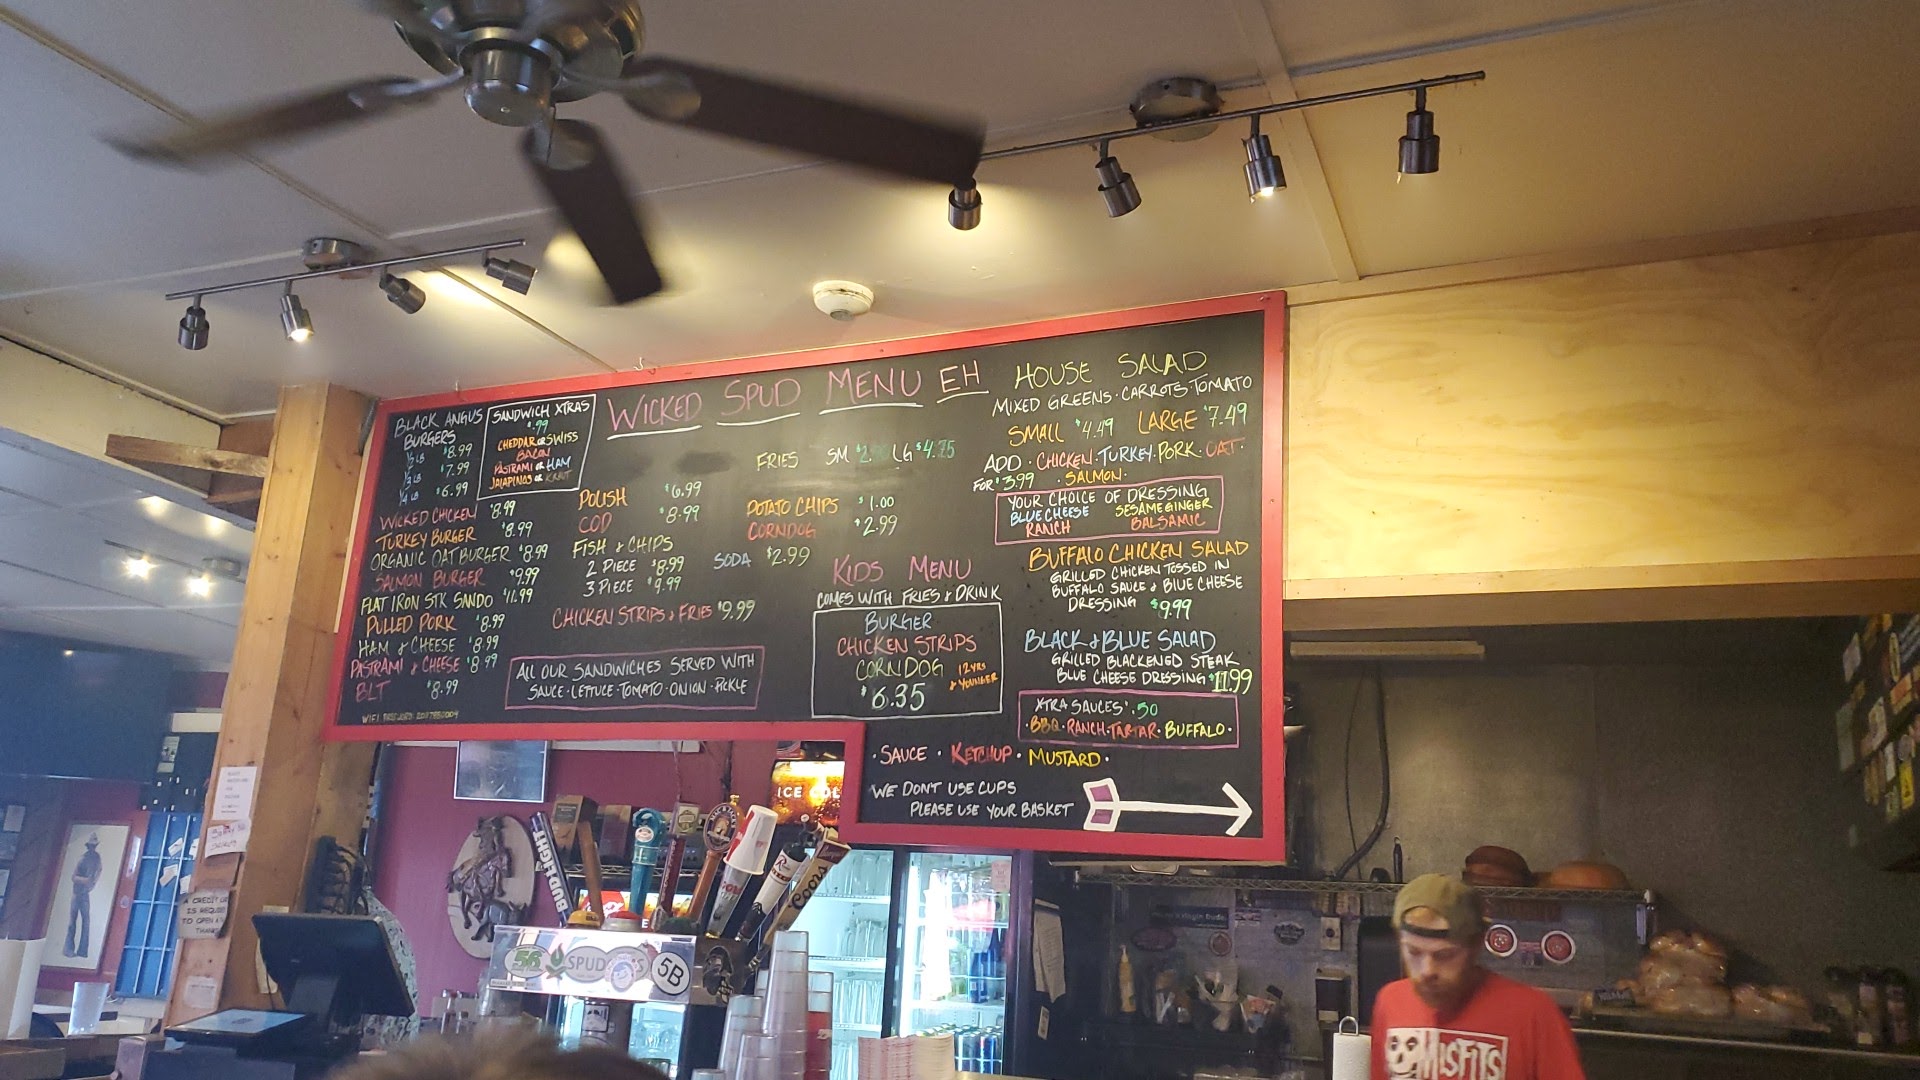 WICKED SPUD MENU EH
BLACK ANGUS
BURGERS
1/2 LB $8.99
1/3 LB $7.99
1/4 LB $6.99
SANDWICH XTRAS
$.99
CHEDDAR OR SWISS
BACON
PASTRAMI OR HAM
JALAPINOS OR KRAUT
WICKED CHICKEN $8.99
TURKEY BURGER $8.99
ORGANIC OAT BURGER $8.99
SALMON BURGER $9.99
FLAT IRON STK SANDO $11.99
PULLED PORK $8.99
HAM & CHEESE $8.99
PASTRAMI & CHEESE $8.99
BLT $8.99
WIFI
POLISH $6.99
COD $8.99
FISH & CHIPS
2 PIECE $8.99
3 PIECE $9.99
CHICKEN STRIPS & FRIES $9.99
ALL OUR SANDWICHES SERVED WITH
SAUCE · LETTUCE · TOMATO · ONION · PICKLE
FRIES SM LG $4.75
POTATO CHIPS $1.00
CORNDOG $2.99
SODA $2.99
KIDS MENU
COMES WITH FRIES & DRINK
BURGER
CHICKEN STRIPS
CORNDOG 12 YRS
& YOUNGER
$6.35
HOUSE SALAD
MIXED GREENS · CARROTS · TOMATO
SMALL $4.49 LARGE $7.49
ADD · CHICKEN · TURKEY · PORK · OAT ·
FOR $3.99 · SALMON ·
YOUR CHOICE OF DRESSING
BLUE CHEESE SESAME GINGER
RANCH BALSAMIC
BUFFALO CHICKEN SALAD
GRILLED CHICKEN TOSSED IN
BUFFALO SAUCE & BLUE CHEESE
DRESSING $9.99
BLACK & BLUE SALAD
GRILLED BLACKENED STEAK
BLUE CHEESE DRESSING $11.99
XTRA SAUCES $.50
· BBQ · RANCH · TARTAR · BUFFALO ·
· SAUCE · KETCHUP · MUSTARD ·
WE DON'T USE CUPS
PLEASE USE YOUR BASKET
ICE COL
BUD LIGHT
Coors
SPUD
5B
A CREDIT
IS REQUIRE
TO OPEN A
THANK
MISFITS